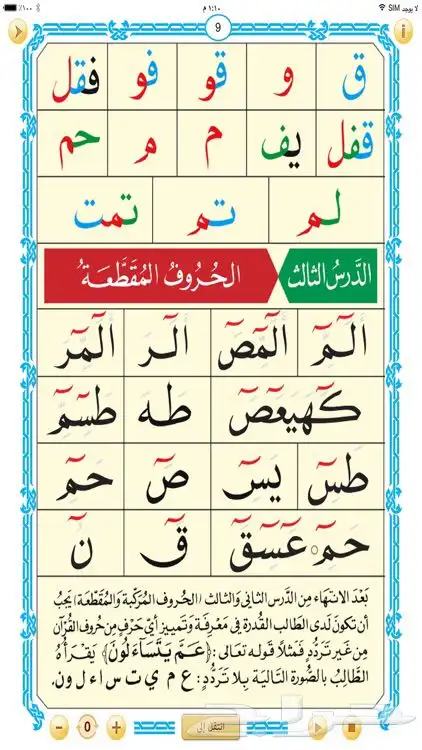 لا يوجد SIM ١:١٠ م ١٠٠٪
٩
ق و قو فو فقل
قفل يف م مـ حم
لم تم تمت
الدَّرسُ الثالث الحُرُوفُ المُقَطَّعَةُ
الٓمٓ الٓمٓصٓ الٓر الٓمٓر
كٓهيعٓصٓ طه طسٓمٓ
طسٓ يسٓ صٓ حمٓ
حمٓ عٓسٓقٓ قٓ نٓ
بَعْدَ الانتِهَاءِ مِنَ الدَّرسِ الثاني وَالثالث (الحُروفُ المُرَكَّبة وَالمُقَطَّعَة) يَجِبُ
أن تكونَ لدى الطالبِ القُدرة في مَعْرِفَة وَتَمييز أيّ حَرْفٍ مِن حُروف القُرآن
مِن غَير تردُّدٍ فَمثلاً قَوله تعالى: ﴿عَمَّ يَتَسَاءَلُونَ﴾ يَقْرَأهُ
الطّالِبُ بالصُّورَة التاليَة بِلا تَرَدُّدٍ: ع م ي ت س ا ء ل و ن.
- 0 + انتقل إلى
حراج